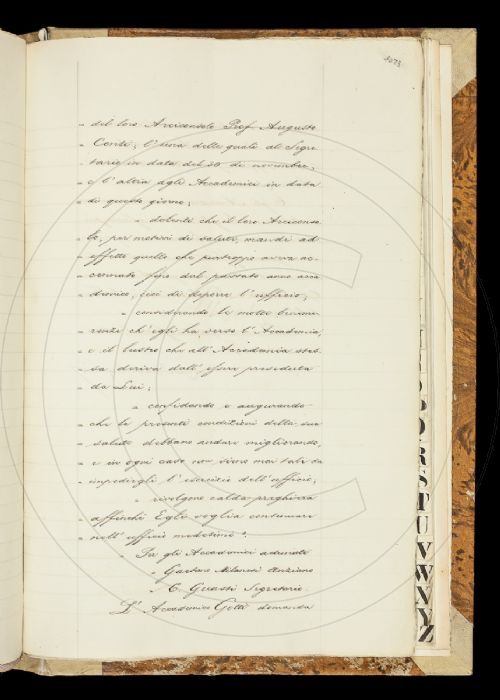 1073
„ del loro Arciconsolo Prof. Augusto
„ Conti; l'una delle quali al Segre-
„ tario in data del 30 di novembre,
„ e l'altra agli Accademici in data
„ di questo giorno;
„ dolenti che il loro Arciconso-
„ lo, per motivi di salute, mandi ad
„ effetto quello che purtroppo aveva ac-
„ cennato fino dal passato anno acca-
„ demico, cioè di deporre l'ufficio;
„ considerando le molte beneme-
„ renze ch'egli ha verso l'Accademia,
„ e il lustro che all'Accademia stes-
„ sa deriva dall'esser preseduta
„ da Lui;
„ confidando e augurando
„ che le presenti condizioni della sua
„ salute debbano andare migliorando,
„ e in ogni caso non siano mai tali da
„ impedirgli l'esercizio dell'ufficio;
„ rivolgono calda preghiera
„ affinchè Egli voglia continuare
„ nell'ufficio medesimo".
„ Per gli Accademici adunati
„ Gaetano Milanesi Anziano
„ C. Guasti Segretario.
L'Accademico Gotti domanda
S
T
U
V
W
X
Y
Z